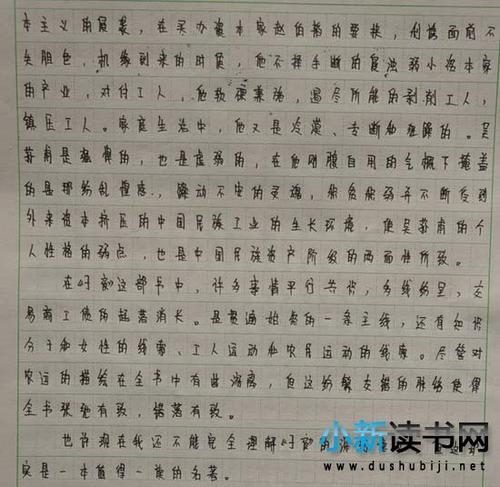 本主义的发展，在买办资本家赵伯韬的要挟，利益面前不
失胆色，机缘到来的时候，他不择手断的侵浊弱小资本家
的产业，对付工人，他软硬兼施，遏尽所能的剥削工人，
镇压工人。家庭生活中，他又是冷漠、专断和难解的。吴
荪甫是强悍的，也是虚弱的，在他刚腹自用的气概下掩盖
的是那纷乱惶惑、降动不安的灵魂，
外来资本挤压的中国民族工业的生长环境，使吴荪甫的个
人性格的弱点，也是中国民族资产阶级的两面性所致。
在《子夜》这部书中，许多事情平行共存，多线纷呈，交
易商工债的起落消长。是贯通始点的一条主线，还有知识
分子和女性的线索、工人运动和农民运动的线索。尽管对
农运的描绘在全书中有些游离，但这纷繁交错的脉络使得
全书张弛有致，错落有致。
也许现在我还不能完全理解《子夜》的深
实是一本值得一读的名著。
小新读书网
www.dushubiji.net